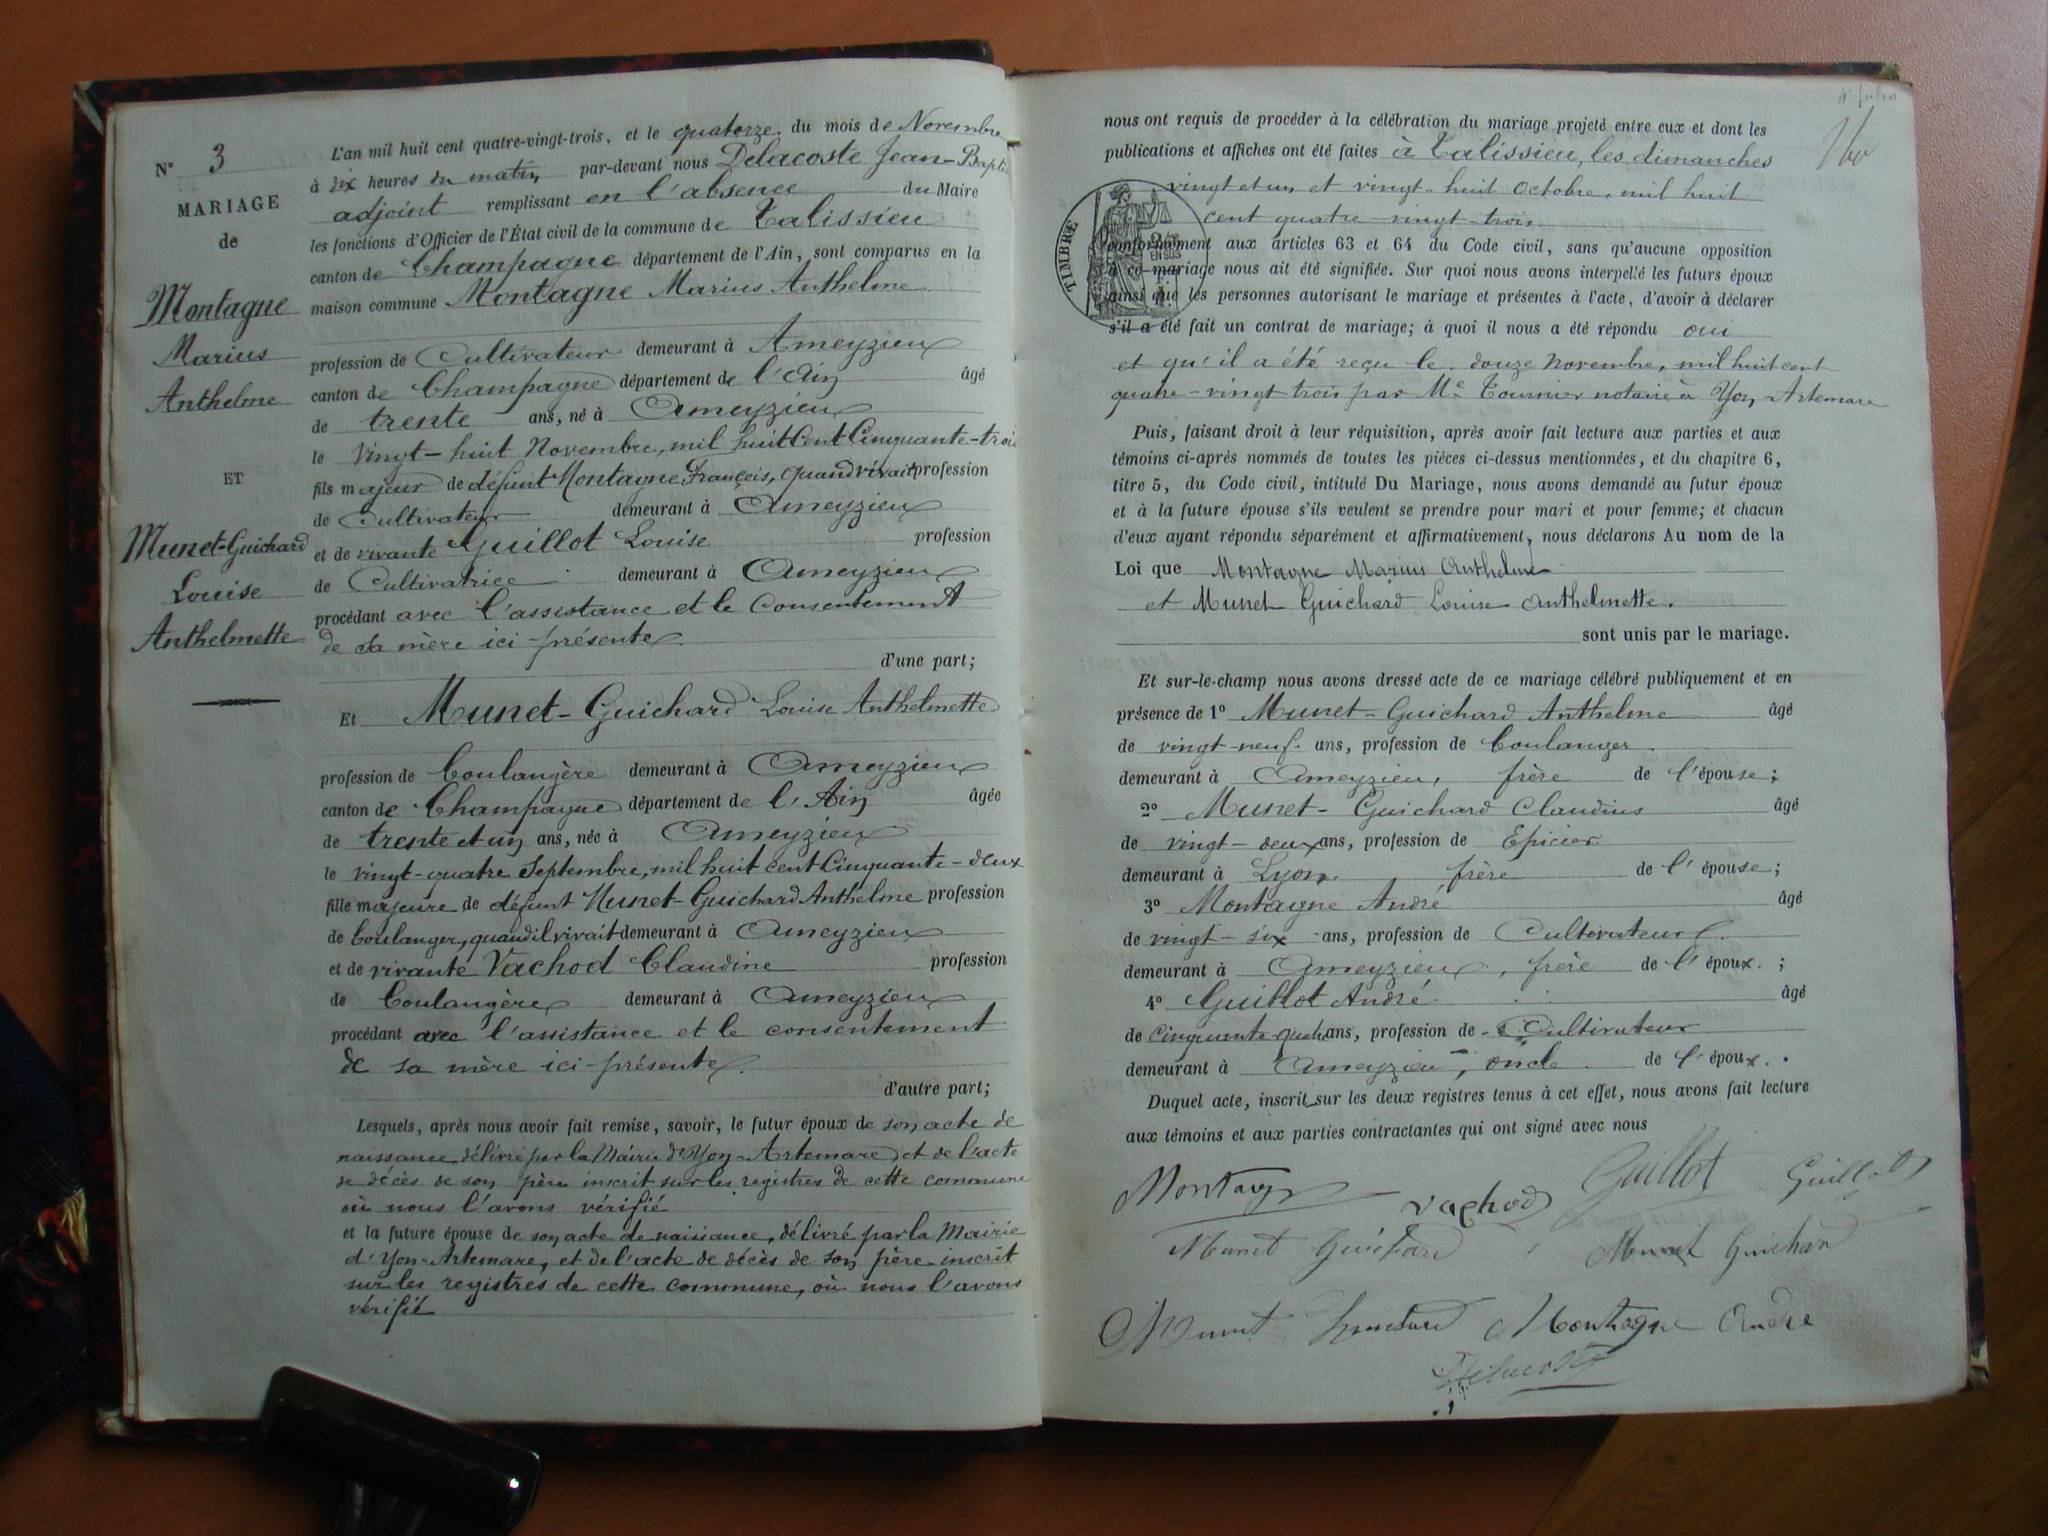 N° 3
MARIAGE
de
Montagne
Marius
Anthelme
ET
Munet-Guichard
Louise
Anthelmette
L'an mil huit cent quatre-vingt-trois, et le quatorze du mois de Novembre
à dix heures du matin par-devant nous Delacoste Jean-Bapti
adjoint remplissant en l'absence du Maire
les fonctions d'Officier de l'État civil de la commune de Talissieu
canton de Champagne département de l'Ain, sont comparus en la
maison commune Montagne Marius Anthelme
profession de Cultivateur demeurant à Ameyzieu
canton de Champagne département de l'Ain âgé
de trente ans, né à Ameyzieu
le vingt-huit Novembre, mil huit Cent Cinquante-trois
fils majeur de défunt Montagne François, quand vivait profession
de Cultivateur demeurant à Ameyzieu
et de vivante Guillot Louise profession
de Cultivatrice demeurant à Ameyzieu
procédant avec l'assistance et le Consentement
de sa mère ici-présente
d'une part;
Et Munet-Guichard Louise Anthelmette
profession de Boulangère demeurant à Ameyzieu
canton de Champagne département de l'Ain âgée
de trente et un ans, née à Ameyzieu
le vingt-quatre Septembre, mil huit cent Cinquante-deux
fille majeure de défunt Munet-Guichard Anthelme profession
de boulanger, quand il vivait demeurant à Ameyzieu
et de vivante Vachod Claudine profession
de Boulangère demeurant à Ameyzieu
procédant avec l'assistance et le consentement
de sa mère ici-présente
d'autre part;
Lesquels, après nous avoir fait remise, savoir, le futur époux de son acte de
naissance délivré par la Mairie d'Yon-Artemare et de l'acte
de décès de son père inscrit sur les registres de cette commune
où nous l'avons vérifié
et la future épouse de son acte de naissance, délivré par la Mairie
d'Yon-Artemare, et de l'acte de décès de son père inscrit
sur les registres de cette commune, où nous l'avons
vérifié
nous ont requis de procéder à la célébration du mariage projeté entre eux et dont les
publications et affiches ont été faites à Talissieu, les dimanches
vingt et un et vingt-huit Octobre, mil huit
cent quatre-vingt-trois
TIMBRE
2/10 EN SUS
conformément aux articles 63 et 64 du Code civil, sans qu'aucune opposition
à ce mariage nous ait été signifiée. Sur quoi nous avons interpellé les futurs époux
ainsi que les personnes autorisant le mariage et présentes à l'acte, d'avoir à déclarer
s'il a été fait un contrat de mariage; à quoi il nous a été répondu oui
et qu'il a été reçu le douze Novembre, mil huit cent
quatre-vingt trois par Me Tournier notaire à Yon-Artemare
Puis, faisant droit à leur réquisition, après avoir fait lecture aux parties et aux
témoins ci-après nommés de toutes les pièces ci-dessus mentionnées, et du chapitre 6,
titre 5, du Code civil, intitulé Du Mariage, nous avons demandé au futur époux
et à la future épouse s'ils veulent se prendre pour mari et pour femme; et chacun
d'eux ayant répondu séparément et affirmativement, nous déclarons Au nom de la
Loi que Montagne Marius Anthelme
et Munet Guichard Louise Anthelmette.
sont unis par le mariage.
Et sur-le-champ nous avons dressé acte de ce mariage célébré publiquement et en
présence de 1° Munet-Guichard Anthelme âgé
de vingt-neuf ans, profession de boulanger
demeurant à Ameyzieu, frère de l'épouse;
2° Munet-Guichard Claudius âgé
de vingt-deux ans, profession de Epicier
demeurant à Lyon, frère de l'épouse;
3° Montagne André âgé
de vingt-six ans, profession de Cultivateur
demeurant à Ameyzieu, frère de l'époux;
4° Guillot André âgé
de cinquante ans, profession de Cultivateur
demeurant à Ameyzieu, oncle de l'époux.
Duquel acte, inscrit sur les deux registres tenus à cet effet, nous avons fait lecture
aux témoins et aux parties contractantes qui ont signé avec nous
Montagne Vachod Guillot Guillot
Munet Guichard Munet Guichard
Munet Guichard Montagne André
Delacoste